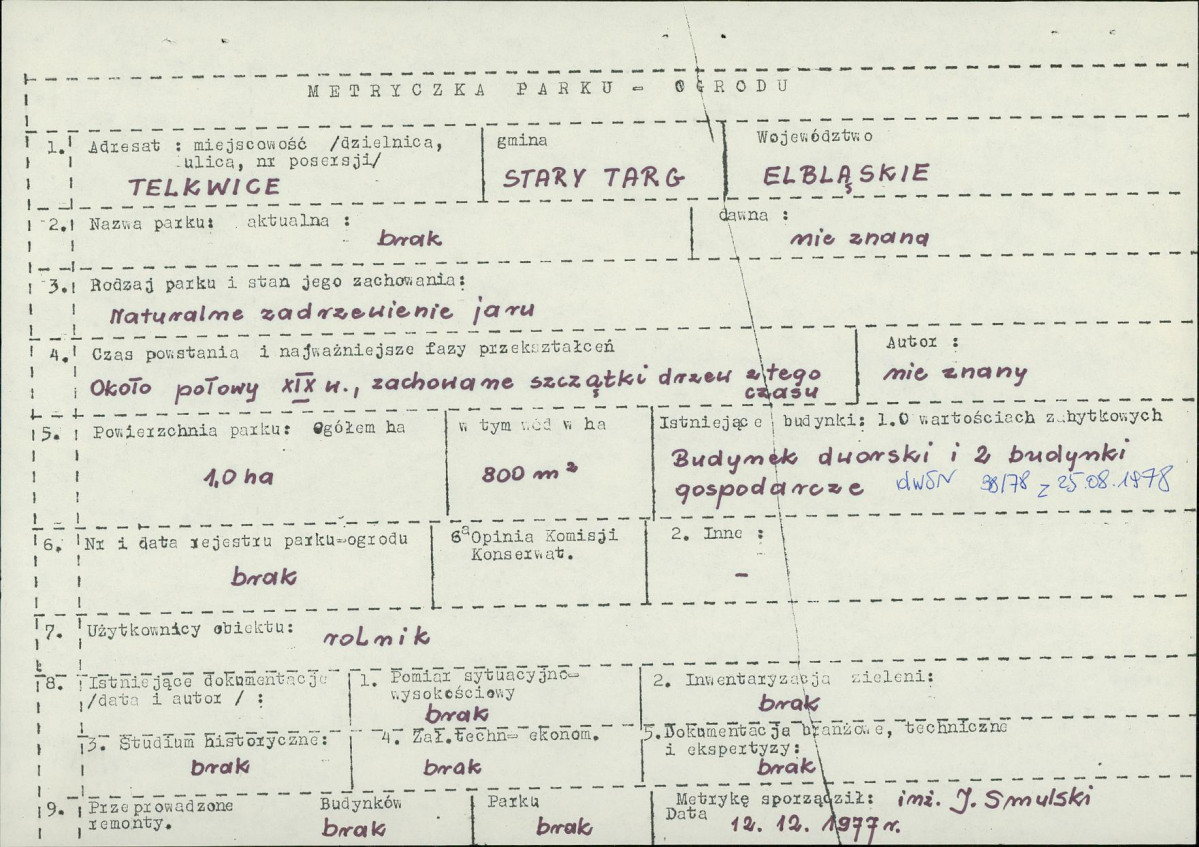 METRYCZKA PARKU - OGRODU
1. Adresat : miejscowość /dzielnica, ulica, nr posersji/
TELKWICE
gmina
STARY TARG
Województwo
ELBLĄSKIE
2. Nazwa parku: aktualna :
brak
dawna :
nie znana
3. Rodzaj parku i stan jego zachowania:
Naturalne zadrzewienie jaru
4. Czas powstania i najważniejsze fazy przekształceń
Około połowy XIX w., zachowane szczątki drzew z tego czasu
Autor :
nie znany
5. Powierzchnia parku: Ogółem ha
1,0 ha
w tym wód w ha
800 m²
Istniejące budynki: 1.O wartościach zabytkowych
Budynek dworski i 2 budynki
gospodarcze dwSN 38/78 z 25.08.1978
6. Nr i data rejestru parku-ogrodu
brak
6a Opinia Komisji
Konserwat.
2. Inne :
-
7. Użytkownicy obiektu: rolnik
8. Istniejące dokumentacje
/data i autor / :
1. Pomiar sytuacyjno-
wysokościowy
brak
2. Inwentaryzacja zieleni:
brak
3. Studium historyczne:
brak
4. Zał.techn- ekonom.
brak
5.Dokumentacja branżowe, techniczne
i ekspertyzy:
brak
9. Przeprowadzone
remonty.
Budynków
brak
Parku
brak
Metrykę sporządził: inż. J. Smulski
Data 12. 12. 1977 r.